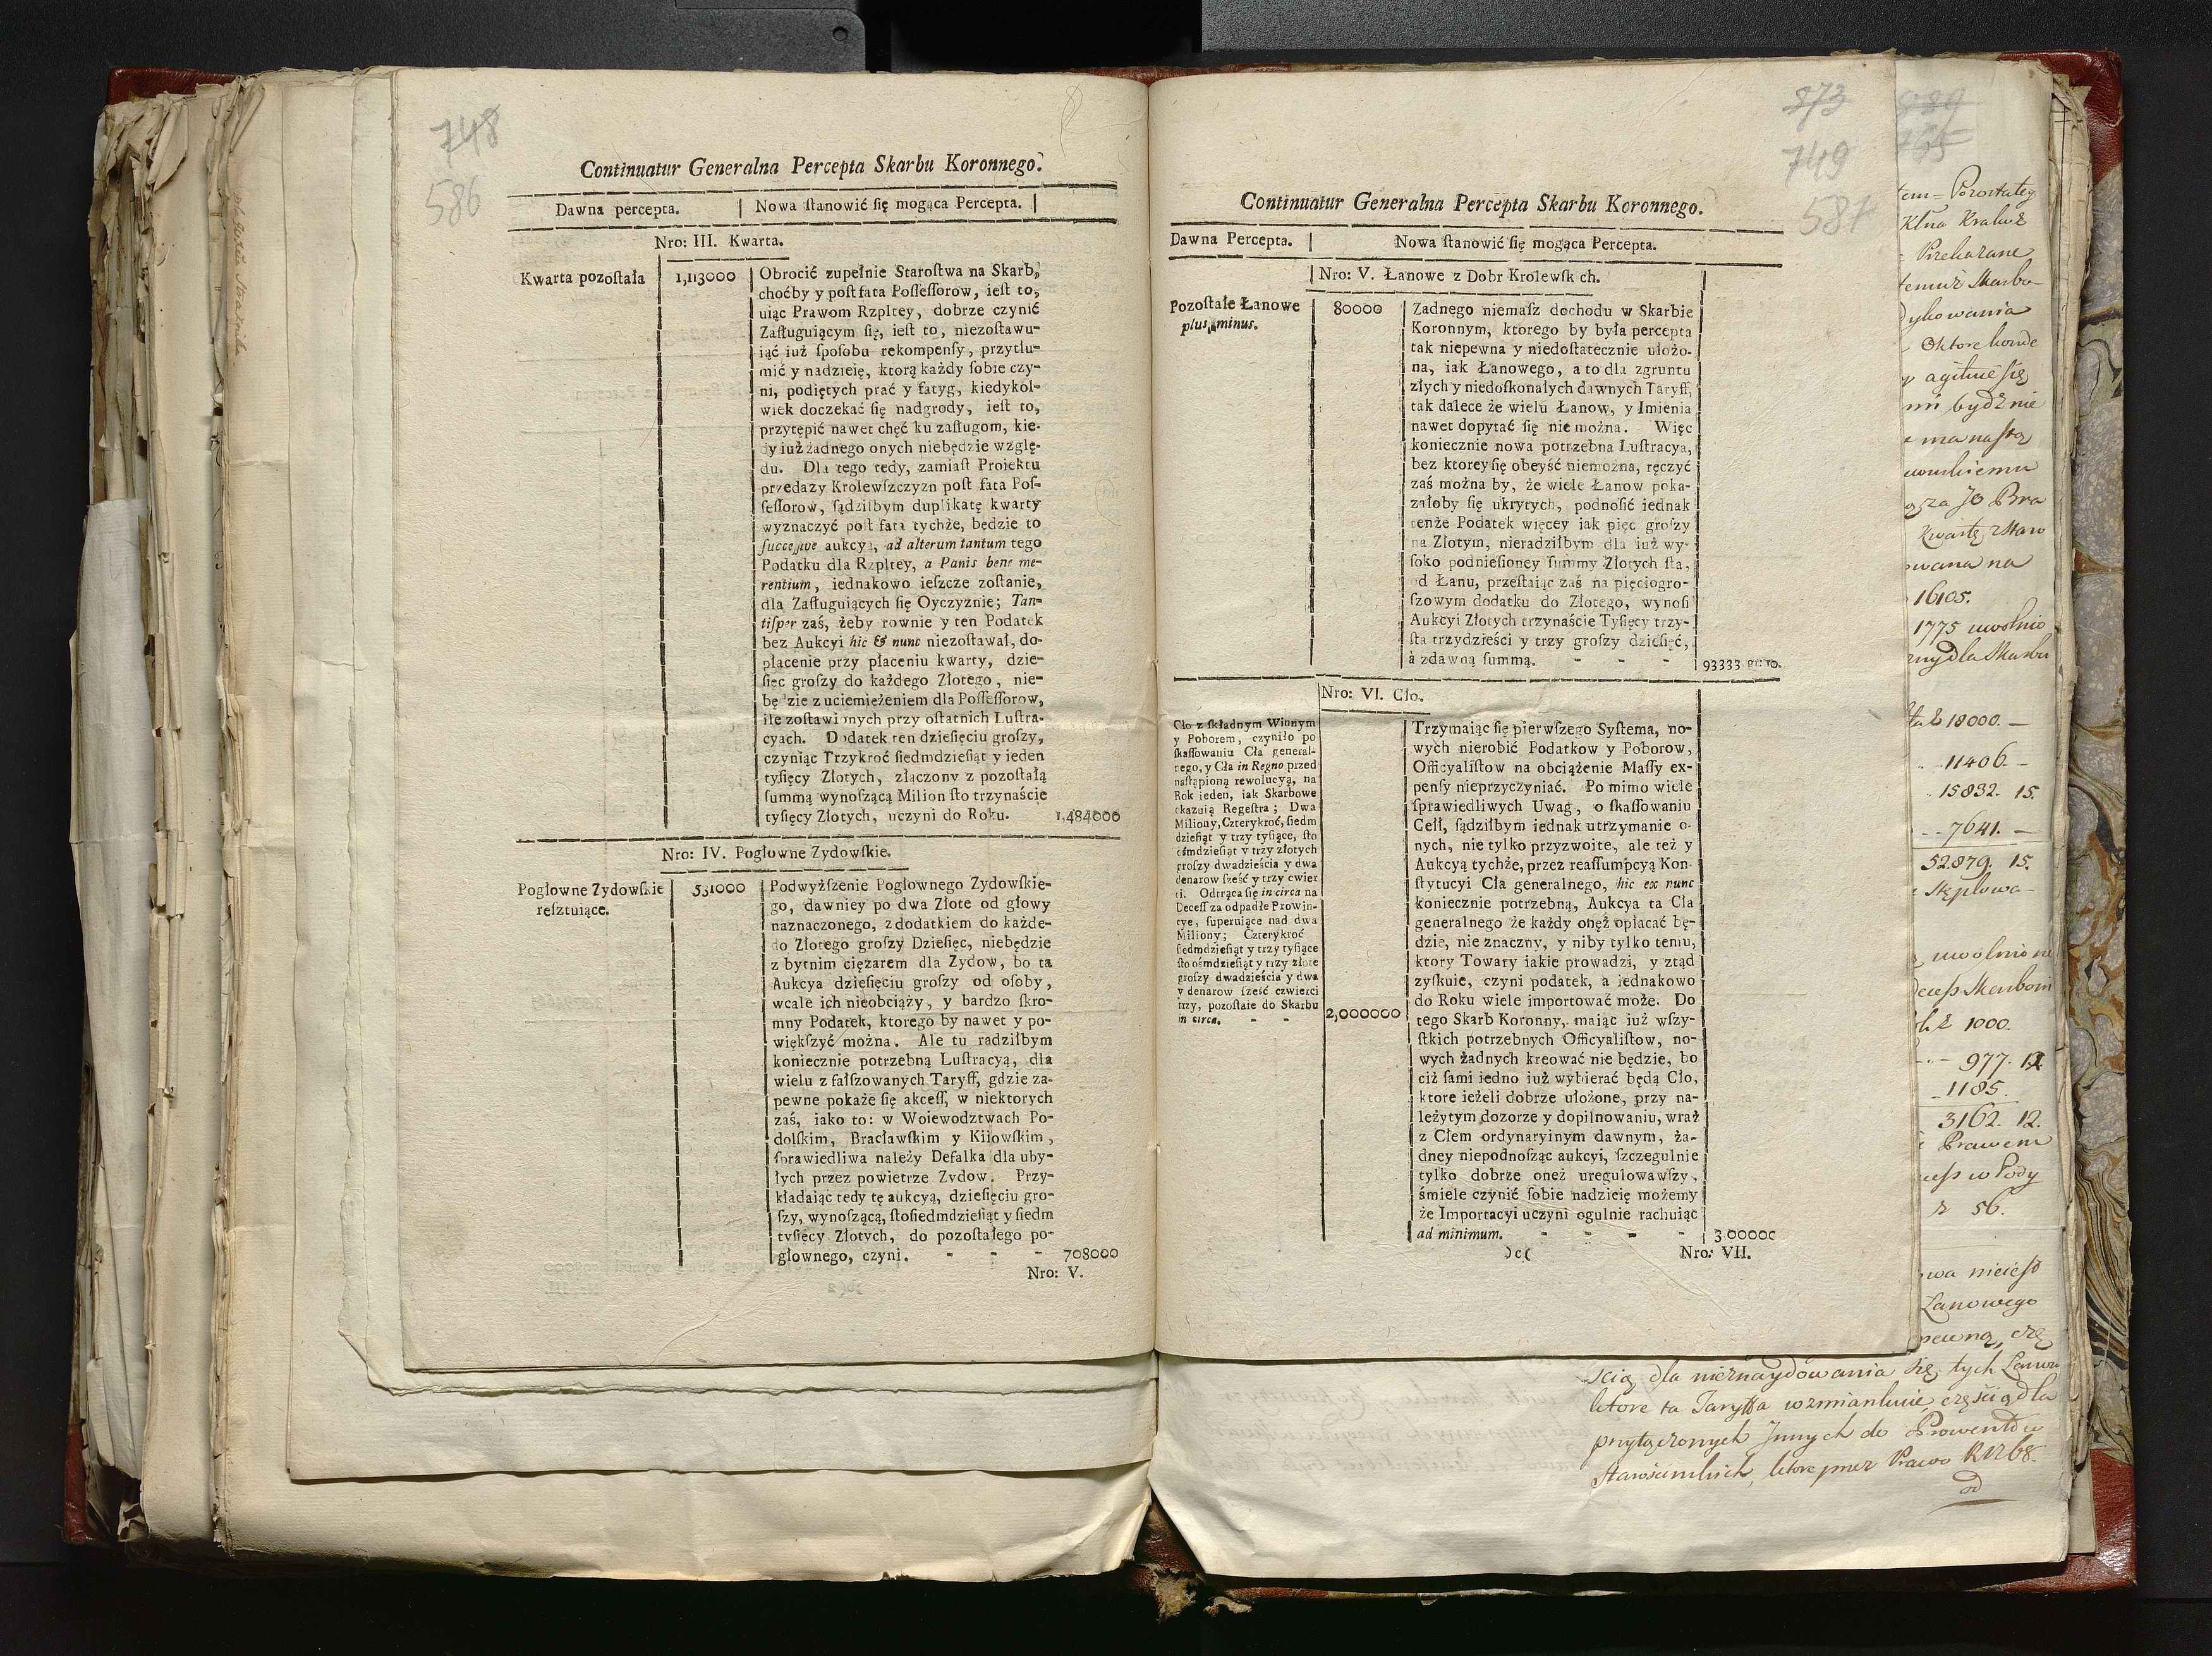 748
586
Continuatur Generalna Percepta Skarbu Koronnego.
Dawna percepta. | Nowa ſtanowić ſię mogąca Percepta. |
Nro: III. Kwarta.
Kwarta pozoſtała 1,113000
Obrocić zupełnie Staroſtwa na Skarb,
choćby y poſt fata Poſſeſſorow, ieſt to,
uiąc Prawom Rzpltey, dobrze czynić
Zaſługuiącym ſię, ieſt to, niezoſtawu-
iąć iuż ſpoſobu rekompenſy, przytłu-
mić y nadzieię, ktorą każdy ſobie czy-
ni, podiętych prać y fatyg, kiedykol-
wiek doczekać ſię nadgrody, ieſt to,
przytępić nawet chęć ku zaſługom, kie-
dy iuż żadnego onych niebędzie wzglę-
du. Dla tego tedy, zamiaſt Proiektu
przedazy Krolewſzczyzn poſt fata Poſ-
ſeſſorow, ſądziłbym duplikatę kwarty
wyznaczyć poſt fata tychże, będzie to
ſucceſſive aukcya, ad alterum tantum tego
Podatku dla Rzpltey, a Panis bene me-
rentium, iednakowo ieſzcze zoſtanie,
dla Zaſługuiących ſię Oyczyznie; Tan-
tiſper zaś, żeby rownie y ten Podatek
bez Aukcyi hic & nunc niezoſtawał, do-
płacenie przy płaceniu kwarty, dzie-
ſięc groſzy do każdego Złotego, nie-
będzie z uciemiężeniem dla Poſſeſſorow,
ile zoſtawionych przy oſtatnich Luſtra-
cyach. Dodatek ten dzieſięciu groſzy,
czyniąc Trzykroć ſiedmdzieſiąt y ieden
tyſięcy Złotych, złączony z pozoſtałą
ſummą wynoſzącą Milion ſto trzynaście
tyſięcy Złotych, uczyni do Roku. 1,484000
Nro: IV. Pogłowne Zydowſkie.
Pogłowne Zydowſkie 531000
reſztuiące.
Podwyżſzenie Pogłownego Zydowſkie-
go, dawniey po dwa Złote od głowy
naznaczonego, z dodatkiem do każde-
do Złotego groſzy Dzieſięc, niebędzie
z bytnim ciężarem dla Zydow, bo ta
Aukcya dzieſięciu groſzy od oſoby,
wcale ich nieobciąży, y bardzo ſkro-
mny Podatek, ktorego by nawet y po-
większyć można. Ale tu radziłbym
koniecznie potrzebną Luſtracyą, dla
wielu z fałſzowanych Taryff, gdzie za-
pewne pokaże ſię akceſſ, w niektorych
zaś, iako to: w Woiewodztwach Po-
dolſkim, Bracławſkim y Kiiowſkim,
ſprawiedliwa należy Defalka dla uby-
łych przez powietrze Zydow. Przy-
kładaiąc tedy tę aukcyą, dzieſięciu gro-
ſzy, wynoſzącą, ſtoſiedmdzieſiąt y ſiedm
tyſięcy Złotych, do pozoſtałego po-
głownego, czyni. - - - 708000
Nro: V.
873
749
587
Continuatur Generalna Percepta Skarbu Koronnego.
Dawna Percepta. | Nowa ſtanowić ſię mogąca Percepta.
Nro: V. Łanowe z Dobr Krolewſkich.
Pozoſtałe Łanowe 80000
plus minus.
Zadnego niemaſz dochodu w Skarbie
Koronnym, ktorego by była percepta
tak niepewna y niedoſtatecznie ułożo-
na, iak Łanowego, a to dla zgruntu
złych y niedoſkonałych dawnych Taryff,
tak dalece że wielu Łanow, y Imienia
nawet dopytać ſię nie można. Więc
koniecznie nowa potrzebna Luſtracya,
bez ktorey ſię obeyść niemożna, ręczyć
zaś można by, że wiele Łanow poka-
załoby ſię ukrytych, podnoſić iednak
tenże Podatek więcey iak pięc groſzy
na Złotym, nieradziłbym dla iuż wy-
ſoko podnieſioney ſummy Złotych ſta,
od Łanu, przeſtaiąc zaś na pięciogro-
ſzowym dodatku do Złotego, wynoſi
Aukcyi Złotych trzynaście Tyſięcy trzy-
ſta trzydzieści y trzy groſzy dzieſięć,
à z dawną ſummą. - - - 93333 gr: 10.
Nro: VI. Cło.
Cło z ſkładnym Winnym
y Poborem, czyniło po
ſkaſſowaniu Cła general-
nego, y Cła in Regno przed
naſtąpioną rewolucyą, na
Rok ieden, iak Skarbowe
okazuią Regeſtra; Dwa
Miliony, Czterykroć, ſiedm
dzieſiąt y trzy tyſiące, ſto
oſmdzieſiąt y trzy złotych
groſzy dwadzieścia y dwa
denarow ſześć y trzy cwier
ći. Odtrąca ſię in circa na
Deceſſ za odpadłe Prowin-
cye, ſuperuiące nad dwa
Miliony; Czterykroć
ſiedmdzieſiąt y trzy tyſiące
ſto oſmdzieſiąt y trzy złote
groſzy dwadzieścia y dwa
y denarow ſześć czwierci
trzy, pozoſtaie do Skarbu
in circa. - - 2,000000
Trzymaiąc ſię pierwſzego Syſtema, no-
wych nierobić Podatkow y Poborow,
Officyaliſtow na obciążenie Maſſy ex-
penſy nieprzyczyniać. Po mimo wiele
ſprawiedliwych Uwag, o ſkaſſowaniu
Ceł, ſądziłbym iednak utrzymanie o-
nych, nie tylko przyzwoite, ale też y
Aukcyą tychże, przez reaſſumpcyą Kon-
ſtytucyi Cła generalnego, hic ex nunc
koniecznie potrzebną, Aukcya ta Cła
generalnego że każdy onęż opłacać bę-
dzie, nie znaczny, y niby tylko temu,
ktory Towary iakie prowadzi, y ztąd
zyſkuie, czyni podatek, a iednakowo
do Roku wiele importować może. Do
tego Skarb Koronny, maiąc iuż wſzy-
ſtkich potrzebnych Officyaliſtow, no-
wych żadnych kreować nie będzie, bo
ciż ſami iedno iuż wybierać będą Cło,
ktore ieżeli dobrze ułożone, przy na-
leżytym dozorze y dopilnowaniu, wraz
z Cłem ordynaryinym dawnym, ża-
dney niepodnoſząc aukcyi, ſzczegulnie
tylko dobrze oneż uregulowawſzy,
śmiele czynić ſobie nadzieię możemy
że Importacyi uczyni ogulnie rachuiąc
ad minimum. - - - - 3,00000
)c( Nro: VII.
Kwartę z Staro
16105.
1775 uwolnio
18000. —
11406. —
15832. 15.
7641. —
52.879. 15.
1000.
977. 12
1185.
3162. 12.
Prawem
56.
Łanowego
ścią dla nieznaydowania się tych Łanow
ktore ta Taryffa wzmiankuie, częścią dla
przyłączonych Innych do Prowentow
Starościnskich, ktore przez Prawo
od